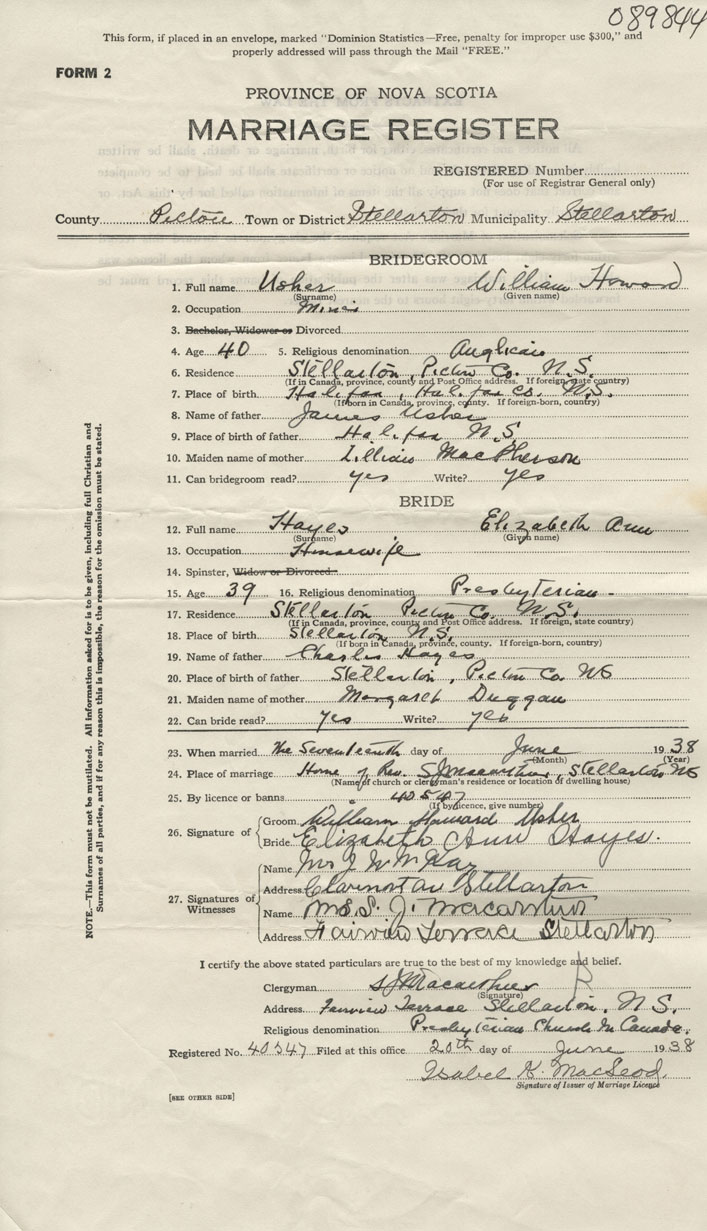 089844
This form, if placed in an envelope, marked "Dominion Statistics—Free, penalty for improper use $300," and
properly addressed will pass through the Mail "FREE."
FORM 2
PROVINCE OF NOVA SCOTIA
MARRIAGE REGISTER
REGISTERED Number
(For use of Registrar General only)
County Pictou Town or District Stellarton Municipality Stellarton
BRIDEGROOM
1. Full name Usher William Howard
(Surname) (Given name)
2. Occupation Miner
3. Bachelor, Widower or Divorced
4. Age 40 5. Religious denomination Anglican
6. Residence Stellarton, Pictou Co. N.S.
(If in Canada, province, county and Post Office address. If foreign, state country)
7. Place of birth Halifax, Halifax Co. N.S.
(If born in Canada, province, county. If foreign-born, country)
8. Name of father James Usher
9. Place of birth of father Halifax N.S.
10. Maiden name of mother Lillian MacPherson
11. Can bridegroom read? yes Write? yes
BRIDE
12. Full name Hayes Elizabeth Ann
(Surname) (Given name)
13. Occupation Housewife
14. Spinster, Widow or Divorced
15. Age 39 16. Religious denomination Presbyterian
17. Residence Stellarton Pictou Co. N.S.
(If in Canada, province, county and Post Office address. If foreign, state country)
18. Place of birth Stellarton N.S.
(If born in Canada, province, county. If foreign-born, country)
19. Name of father Charles Hayes
20. Place of birth of father Stellarton, Pictou Co. NS
21. Maiden name of mother Margaret Duggan
22. Can bride read? yes Write? yes
23. When married The Seventeenth day of June 1938
(Month) (Year)
24. Place of marriage Home of Rev. S J Macarthur, Stellarton NS
(Name of church or clergyman's residence or location of dwelling house)
25. By licence or banns 40547
(If by licence, give number)
26. Signature of
Groom William Howard Usher
Bride Elizabeth Ann Hayes.
27. Signatures of Witnesses
Name Mrs J W McKay
Address Stellarton
Name Mrs. S. J. Macarthur
Address Fairview Terrace Stellarton
I certify the above stated particulars are true to the best of my knowledge and belief.
Clergyman S J Macarthur
(Signature)
Address Fairview Terrace Stellarton, N.S.
Religious denomination Presbyterian Church In Canada.
Registered No. 40547 Filed at this office 20th day of June 1938
Isabel K. MacLeod
Signature of Issuer of Marriage Licence
[SEE OTHER SIDE]
NOTE.—This form must not be mutilated. All information asked for is to be given, including full Christian and
Surnames of all parties, and if for any reason this is impossible, the reason for the omission must be stated.